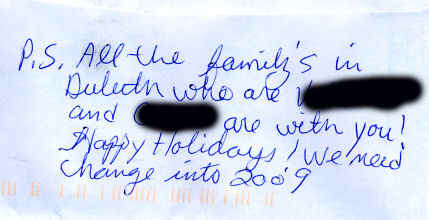 P.S. All the family's in
Duluth who are
and are with you!
Happy Holidays! We need
change into 2009